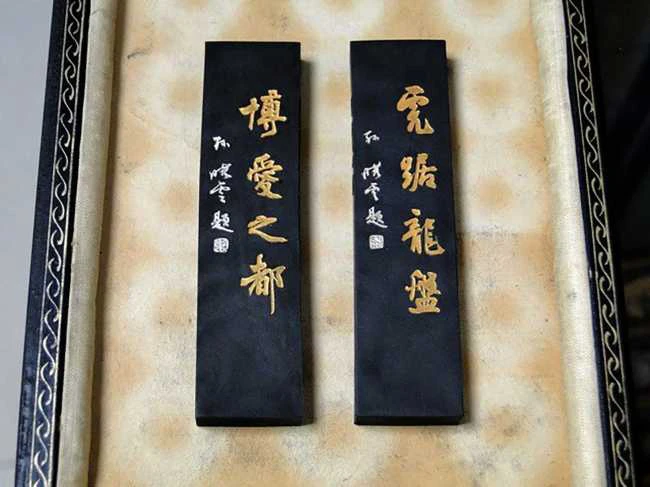 虎踞龍盤
孙曉雲題
博愛之都
孙曉雲題